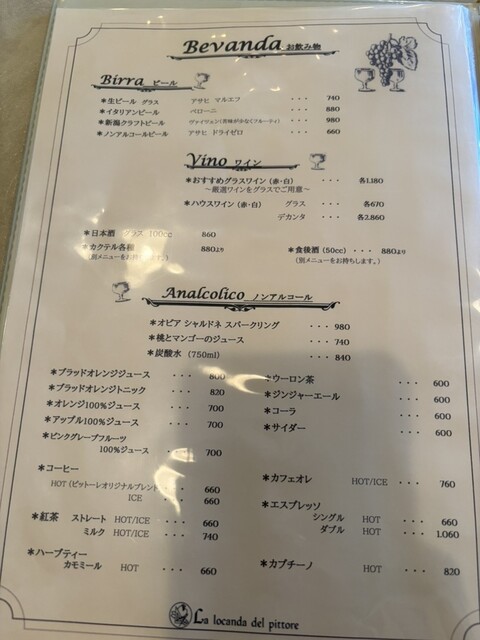 Bevanda お飲み物
Birra ビール
*生ビール グラス アサヒ マルエフ ・・・ 740
*イタリアンビール ペローニ ・・・ 880
*新潟クラフトビール ヴァイツェン(苦味が少なくフルーティ) ・・・ 980
*ノンアルコールビール アサヒ ドライゼロ ・・・ 660
Vino ワイン
*おすすめグラスワイン (赤・白) ・・・ 各1.180
～厳選ワインをグラスでご用意～
*ハウスワイン (赤・白) グラス ・・・ 各670
デカンタ ・・・ 各2.860
*日本酒 グラス 100cc 860
*カクテル各種 880より
(別メニューをお持ちします。)
*食後酒 (50cc) ・・・ 880より
(別メニューをお持ちします。)
Analcolico ノンアルコール
*オピア シャルドネ スパークリング ・・・ 980
*桃とマンゴーのジュース ・・・ 740
*炭酸水 (750ml) ・・・ 840
*ブラッドオレンジジュース ・・・ 800
*ブラッドオレンジトニック ・・・ 820
*オレンジ100%ジュース ・・・ 700
*アップル100%ジュース ・・・ 700
*ピンクグレープフルーツ
100%ジュース ・・・ 700
*ウーロン茶 ・・・ 600
*ジンジャーエール ・・・ 600
*コーラ ・・・ 600
*サイダー ・・・ 600
*コーヒー
HOT (ピットーレオリジナルブレンド) ・・・ 660
ICE ・・・ 660
*紅茶 ストレート HOT/ICE ・・・ 660
ミルク HOT/ICE ・・・ 740
*ハーブティー
カモミール HOT ・・・ 660
*カフェオレ HOT/ICE ・・・ 760
*エスプレッソ
シングル HOT ・・・ 660
ダブル HOT ・・・ 1.060
*カプチーノ HOT ・・・ 820
La locanda del pittore